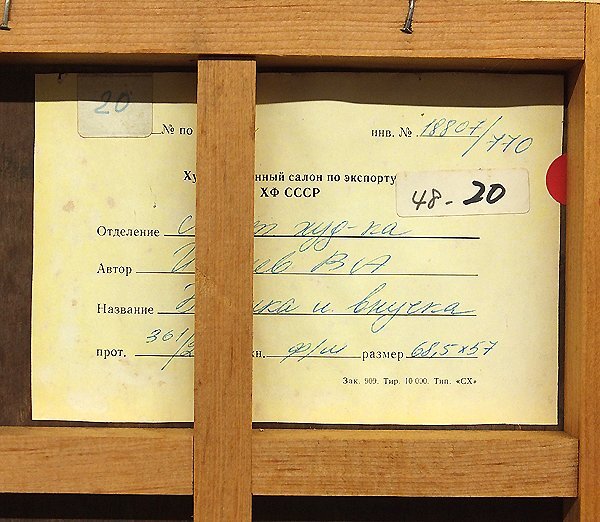 20
№ по инв. № 18807/770
нный салон по экспорту
ХФ СССР
48-20
Отделение худ-ка
Автор ев ВА
Название и внучка
прот. 361/ ф/м размер 68,5x57
Зак. 909. Тир. 10 000. Тип. «СХ»